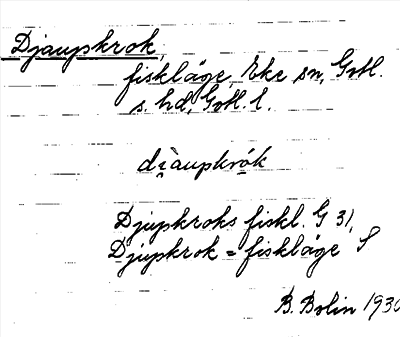 Djaupkrok,
fiskläge, Eke sn, Gotl.
s. hd, Gotl. l.
di̯àupkrók
Djupkroks fiskl. G 31,
Djupkrok = fiskläge S
B. Bolin 1930